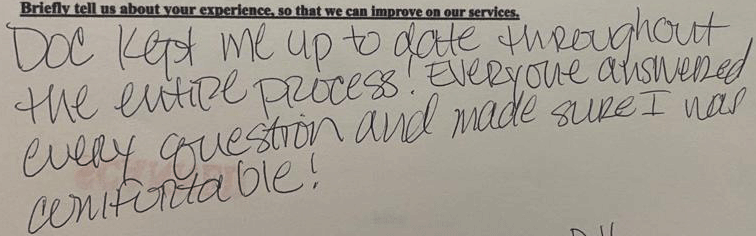 Briefly tell us about your experience, so that we can improve on our services.
Doc kept me up to date throughout
the entire process! Everyone answered
every question and made sure I was
comfortable!